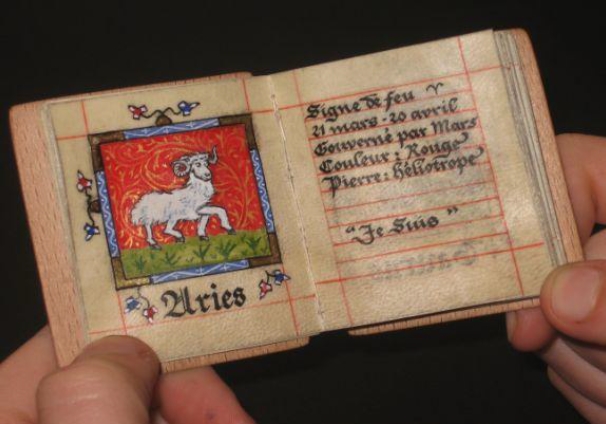 Aries
Signe de feu ♈
21 mars - 20 avril
Gouverné par Mars
Couleur : Rouge
Pierre : héliotrope
"Je Suis"